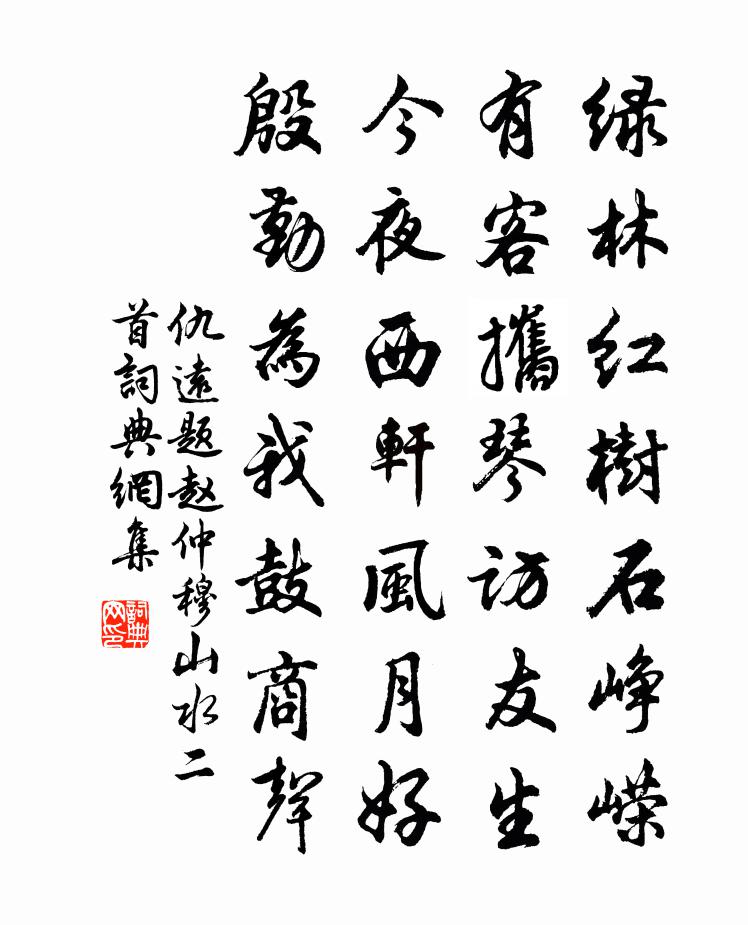 绿林红樹石峥嵘
有客攜琴访友生
今夜西軒風月好
殷勤為我鼓商聲
仇遠题赵仲穆山水二
首詞典網集
詞典网印